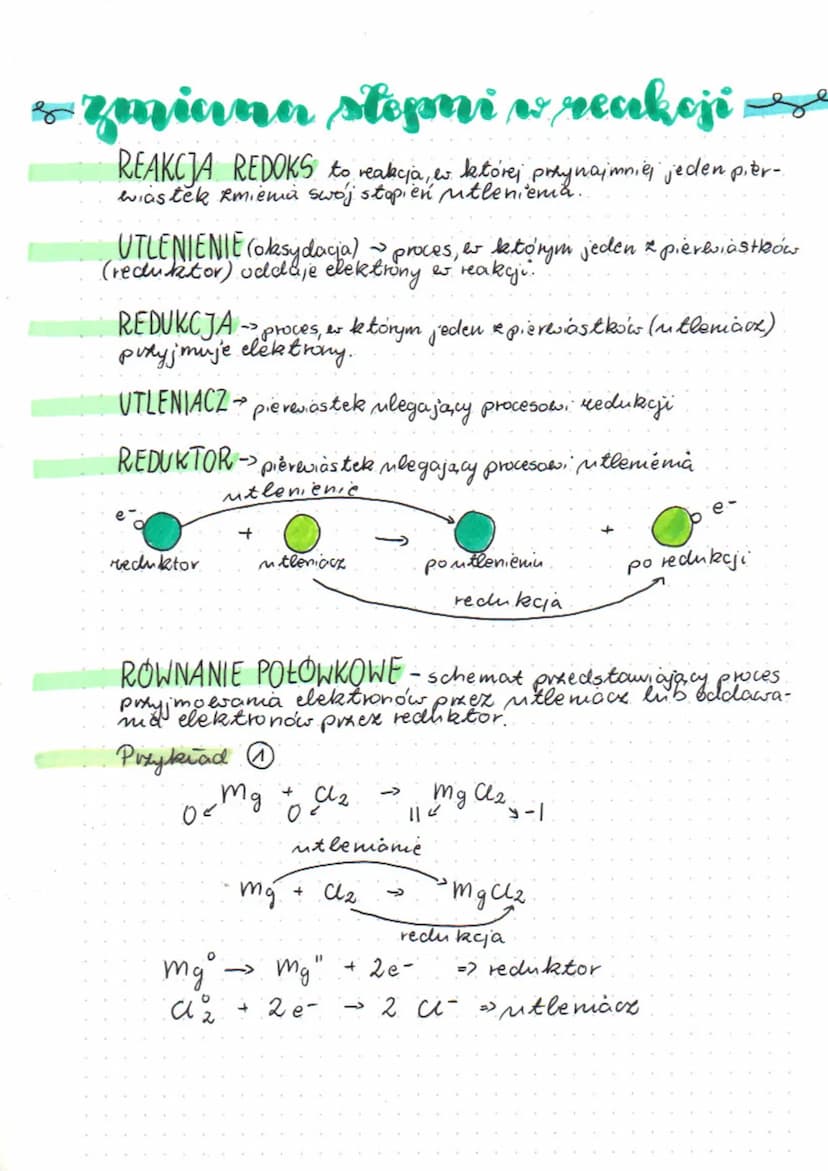 zmiana stopni w reakcji
REAKCJA REDOKS to reakcja, w której przynajmniej jeden pier-
wiastek zmienia swój stopień utlenienia.
UTLENIENIE (oksydacja) → proces, w którym jeden z pierwiastków
(reduktor) oddaje elektrony w reakcji.
REDUKCJA → proces, w którym jeden z pierwiastków (utleniacz)
przyjmuje elektrony.
UTLENIACZ → pierwiastek ulegający procesowi redukcji
REDUKTOR → pierwiastek ulegający procesowi utlenienia
utlenienie
e⁻ + → + e⁻
reduktor utleniacz po utlenieniu po redukcji
redukcja
RÓWNANIE POŁÓWKOWE - schemat przedstawiający proces
przyjmowania elektronów przez utleniacz lub oddawa-
nia elektronów przez reduktor.
Przykład ①
Mg + Cl₂ → MgCl₂
0 0 II -I
utlenianie
Mg + Cl₂ → MgCl₂
redukcja
Mg⁰ → Mg" + 2e⁻ ⇒ reduktor
Cl₂⁰ + 2e⁻ → 2 Cl⁻ ⇒ utleniacz